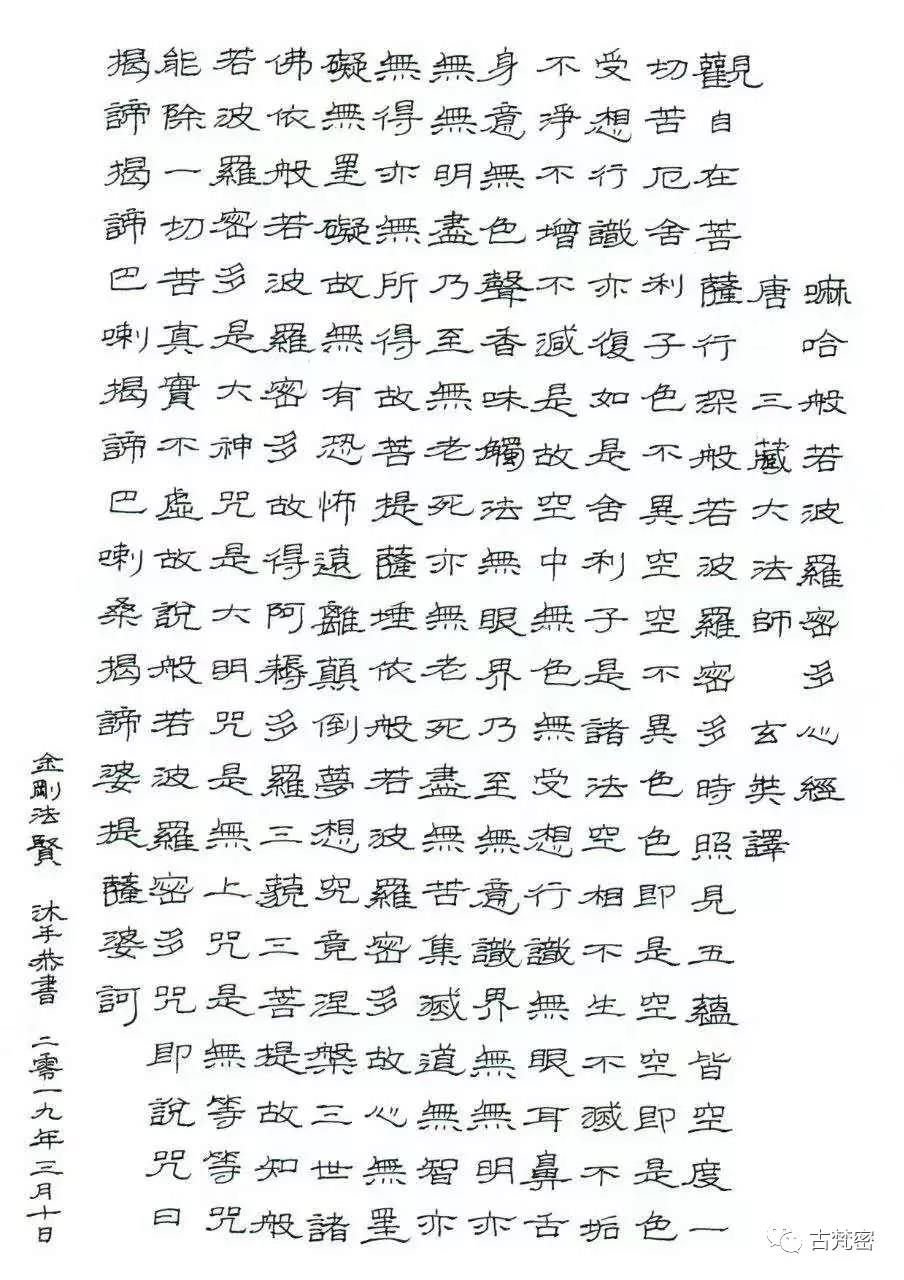 嘛哈般若波羅密多心經
唐 三藏大法師 玄奘譯
觀自在菩薩行深般若波羅密多時照見五蘊皆空度一
切苦厄舍利子色不異空空不異色色即是空空即是色
受想行識亦復如是舍利子是諸法空相不生不滅不垢
不淨不增不減是故空中無色無受想行識無眼耳鼻舌
身意無色聲香味觸法無眼界乃至無意識界無無明亦
無無明盡乃至無老死亦無老死盡無苦集滅道無智亦
無得亦無所得故菩提薩埵依般若波羅密多故心無罣
礙無罣礙故無有恐怖遠離顛倒夢想究竟涅槃三世諸
佛依般若波羅密多故得阿耨多羅三藐三菩提故知般
若波羅密多是大神咒是大明咒是無上咒是無等等咒
能除一切苦真實不虛故說般若波羅密多咒即說咒曰
揭諦揭諦巴喇揭諦巴喇桑揭諦婆提薩婆訶
金剛法賢 沐手恭書 二零一九年三月十日
古梵密